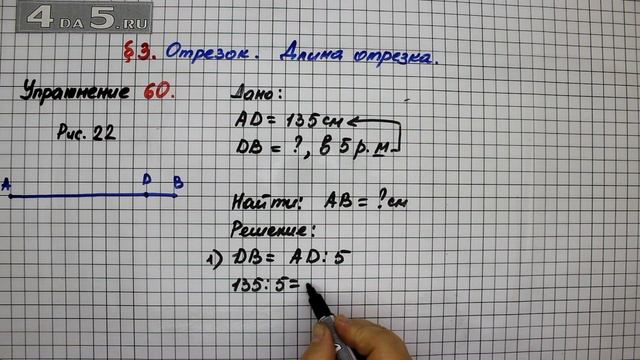 4DA5.RU
§ 3. Отрезок. Длина отрезка.
Упражнение 60.
Рис. 22
A D B
Дано:
AD = 135 см
DB = ?, в 5 р. м
Найти: AB = ? см
Решение:
1) DB = AD : 5
135 : 5 =